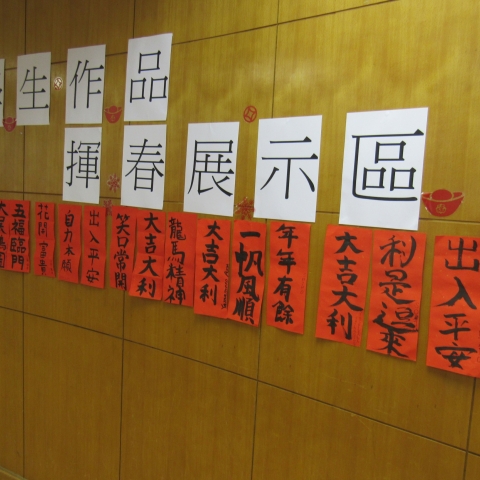 生作品
揮春展示區
五福臨門
花開富貴
自力本領
出入平安
笑口常開
大吉大利
龍馬精神
大吉大利
一帆風順
年年有餘
大吉大利
利是逗來
出入平安